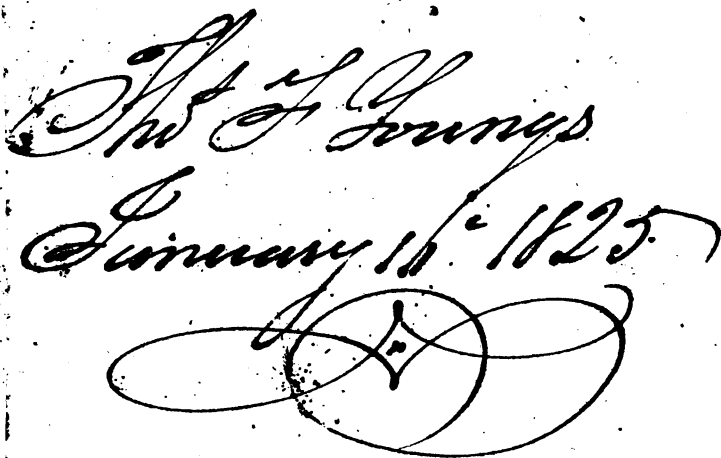 Thos F Youngs
January 1825